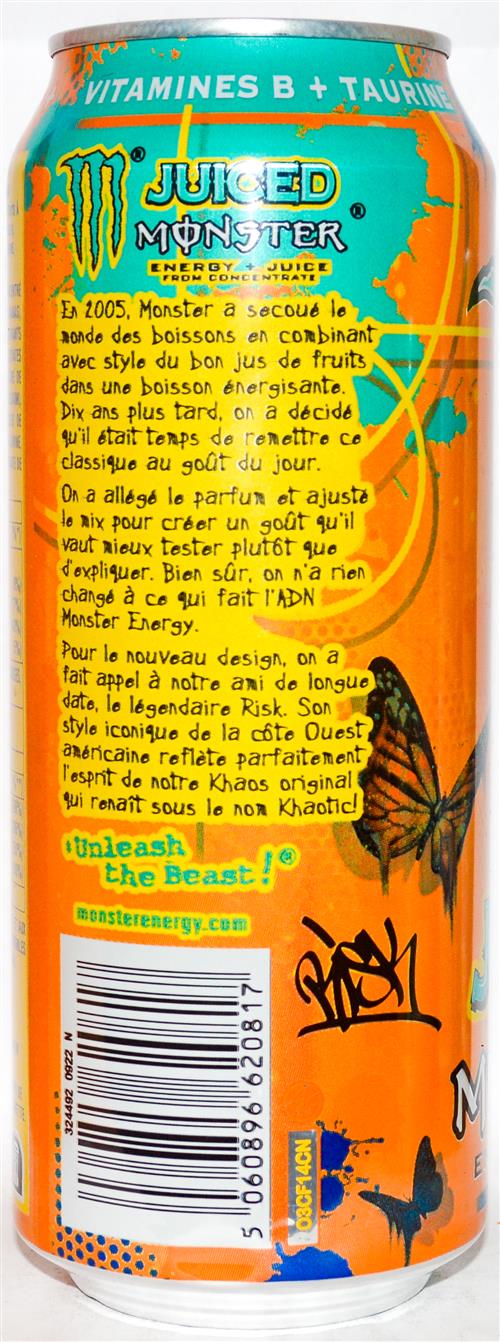 VITAMINES B + TAURINE
JUICED
MONSTER
ENERGY + JUICE
FROM CONCENTRATE
En 2005, Monster a secoué le
monde des boissons en combinant
avec style du bon jus de fruits
dans une boisson énergisante.
Dix ans plus tard, on a décidé
qu'il était temps de remettre ce
classique au goût du jour.
On a allégé le parfum et ajusté
le mix pour créer un goût qu'il
vaut mieux tester plutôt que
d'expliquer. Bien sûr, on n'a rien
changé à ce qui fait l'ADN
Monster Energy.
Pour le nouveau design, on a
fait appel à notre ami de longue
date, le légendaire Risk. Son
style iconique de la côte Ouest
américaine reflète parfaitement
l'esprit de notre Khaos original
qui renaît sous le nom Khaotic!
Unleash
the Beast!®
monsterenergy.com
RISK
324492 0922 N
5 060896 620817
03CF14CN